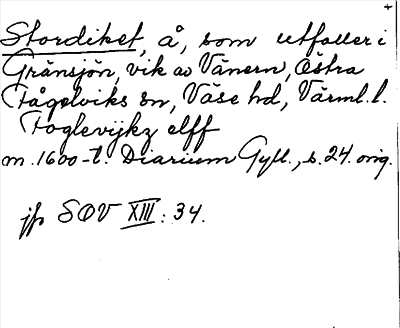 Stordiket, å, som utfaller i
Gränsjön, vik av Vänern, Östra
Fågelviks sn, Väse hd, Värml. l.
Foglevijkz elff
m. 1600-t. Diarium Gyll., s. 24. orig.
jfr SOV XIII: 34.